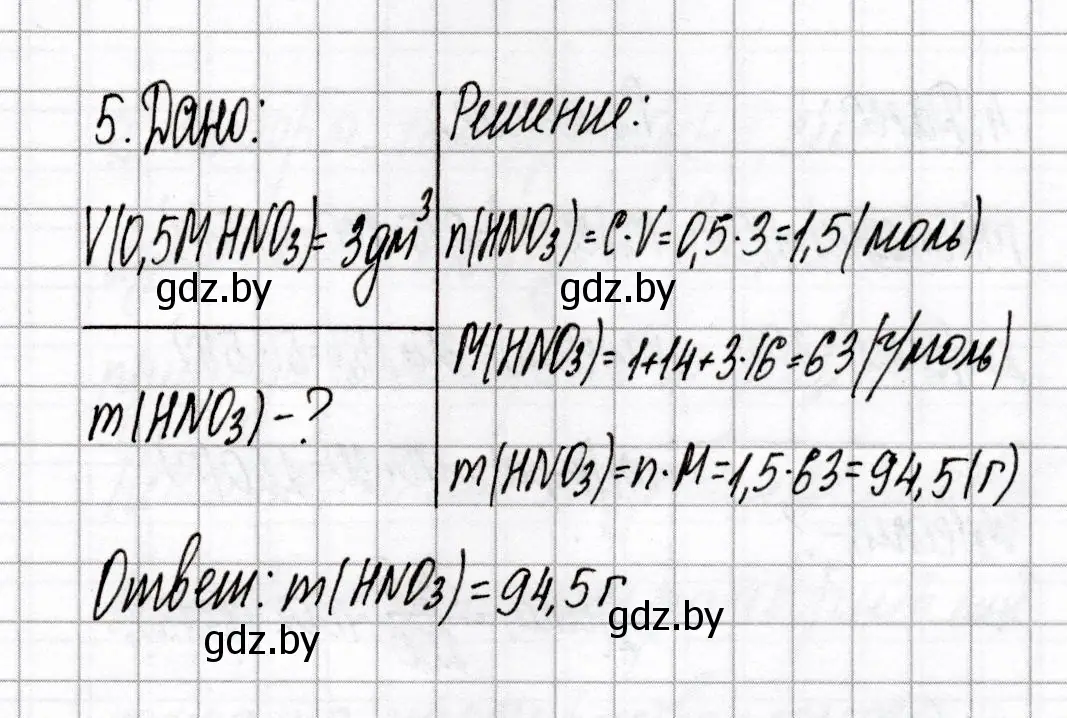 5. Дано:
V(0,5М HNO₃) = 3 дм³
m(HNO₃) - ?
Решение:
n(HNO₃) = c·V = 0,5·3 = 1,5 (моль)
M(HNO₃) = 1+14+3·16 = 63 (г/моль)
m(HNO₃) = n·M = 1,5·63 = 94,5 (г)
Ответ: m(HNO₃) = 94,5 г
gdz.by
gdz.by
gdz.by
gdz.by